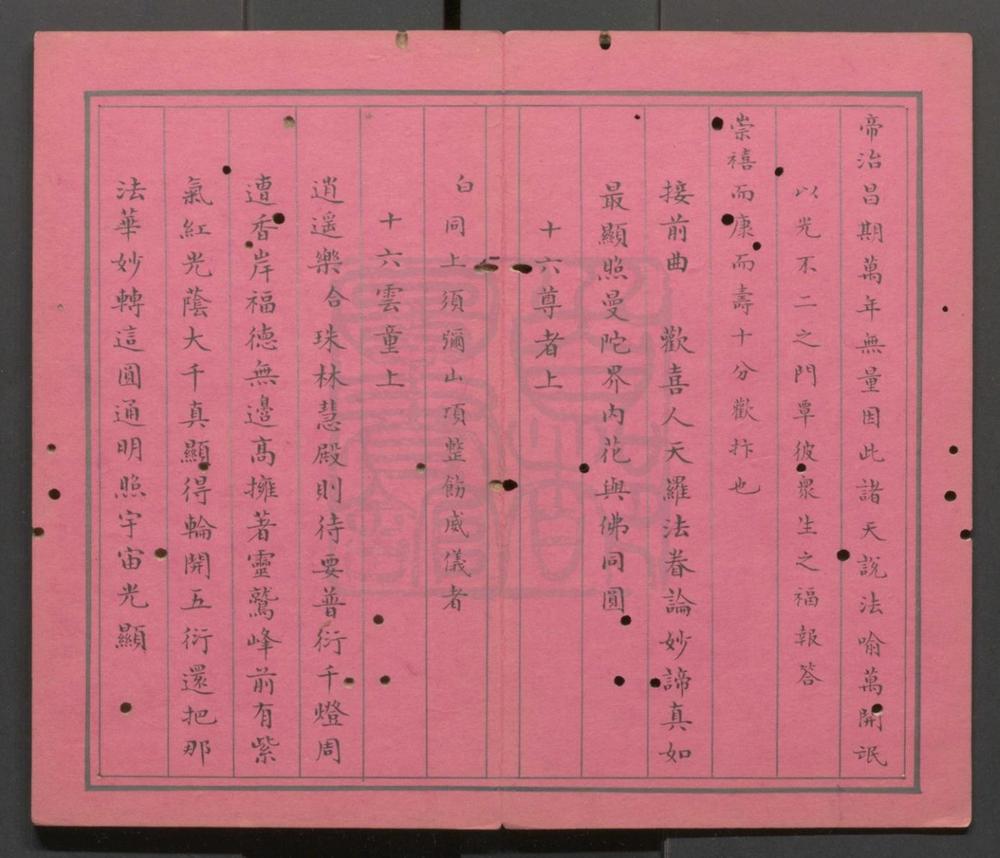 帝治昌期萬年無量因此諸天說法喻萬開氓
以光不二之門覃彼衆生之福報答
崇禧而康而壽十分歡抃也
接前曲 歡喜人天羅法眷論妙諦真如
最顯照曼陀界內花與佛同圓
十六尊者上
白同上須彌山頂整飭威儀者
十六雲童上
逍遥樂合 珠林慧殿則待要普衍千燈周
遭香岸福德無邊高擁著靈鷲峰前有紫
氣紅光蔭大千真顯得輪開五衍還把那
法華妙轉這圓通明照宇宙光顯